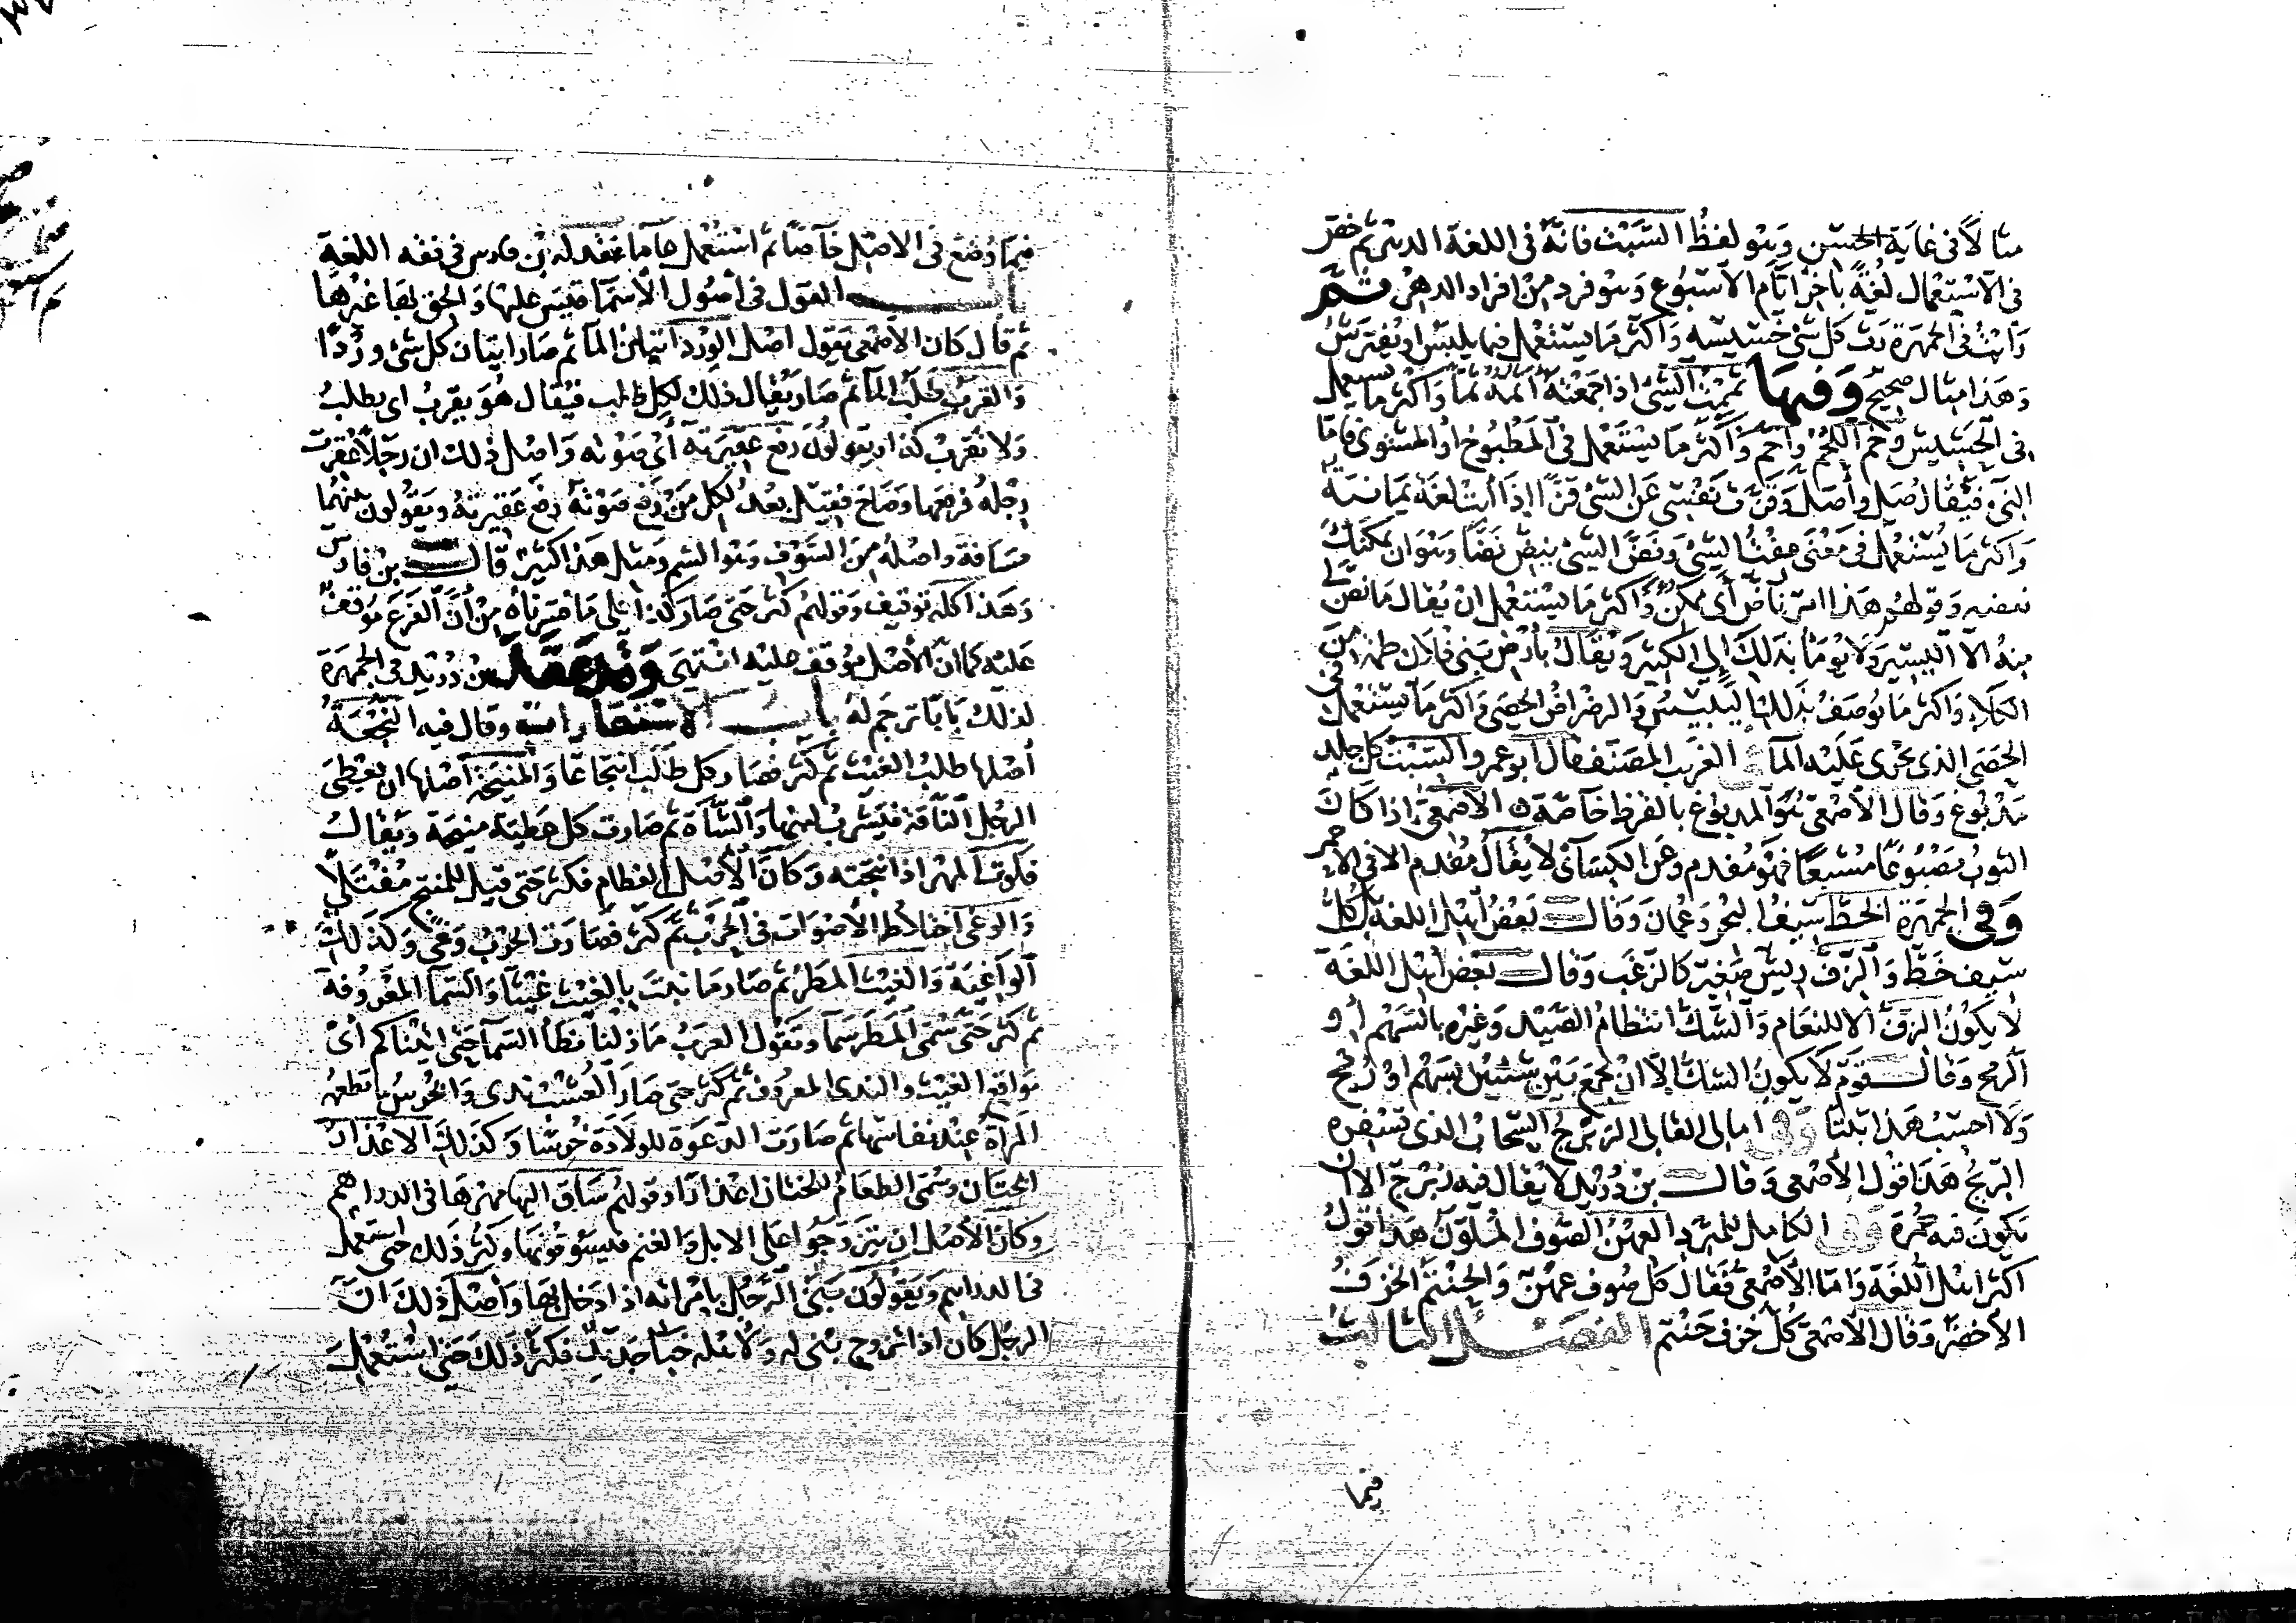 مثالا في غاية الحسن وهو لفظ السبت فانه في اللغة الدهر ثم خص
في الاستعمال لغة باخر ايام الاسبوع وهو فرد من افراد الدهر ثم
رايت في الجمهرة رث كل شي خسيسه واكثر ما يستعمل فيما يلبس او يفترش
وهذا مثال صحيح وفيها ثممت الشي اذا جمعته اثمه ثما واكثر ما يستعمل
في الحشيش وخم اللحم واخم واكثر ما يستعمل في المطبوخ او المشوي فاما
الني فيقال صل واصل وقزت نفسي عن الشي قزا اذا ابت لغة يمانية
واكثر ما يستعمل في معنى عفت الشي ونض الشي ينض نضا وهو ان يمكنك
بعضه وقولهم هذا امر ناض اي ممكن واكثر ما يستعمل ان يقال ما نض لي
منه الا اليسير ولا يوما بذلك الى الكثير ويقال بارض بني فلان طمة من
الكلا واكثر ما يوصف بذلك اليبيس والرضراض الحصى واكثر ما يستعمل في
الحصى الذي يجري عليه الما الغريب المصنف قال ابو عمرو السبت كل جلد
مدبوغ وقال الاصمعي هو المدبوغ بالقرظ خاصة الاصمعي اذا كان
الثوب مصبوغا مشبعا فهو مفدم وعن الكسائي لا يقال مفدم الا في الاحمر
وفي الجمهرة الخط سيف البحر وعمان وقال بعض اهل اللغة بل كل
سيف خط والزف ريش صغير كالزغب وقال بعض اهل اللغة
لا يكون الزف الا للنعام والشك انتظام الصيد وغيره بالسهم او
الرمح وقال قوم لا يكون الشك الا ان يجمع بين شيئين بسهم او رمح
ولا احسب هذا ثبتا وفي امالي القالي الزبرج السحاب الذي تسفره
الريح هذا قول الاصمعي وقال بن دريد لا يقال فيه زبرج الا ان
يكون فيه حمرة وفي الكامل للمبرد العهن الصوف الملون هذا قول
اكثر اهل اللغة واما الاصمعي فقال كل صوف عهن والحنتم الخزف
الاخضر وقال الاصمعي كل خزف حنتم الفصل الثالث
فيما
فيما وضع في الاصل خاصا ثم استعمل عاما عقد له بن فارس في فقه اللغة
باب القول في اصول الاسما قيس عليها والحق بها غيرها
ثم قال كان الاصمعي يقول اصل الورد اتيان الما ثم صار اتيان كل شي وردا
والقرب طلب الما ثم صار يقال ذلك لكل طلب فيقال هو يقرب اي يطلب
ولا تقرب كذا ويقولون رفع عقيرته اي صوته واصل ذلك ان رجلا عقرت
رجله فرفعها وصاح فقيل بعد لكل من رفع صوته رفع عقيرته ويقولون بينهما
مسافة واصله من السوف وهو الشم ومثل هذا كثير قال بن فارس
وهذا كله توقيف وقولهم كثر حتى صار كذا على ما فسرناه من ان الفرع موقف
عليه كما ان الاصل موقف عليه انتهى وقد عقد بن دريد في الجمهرة
لذلك بابا ترجم له باب الاستعارات وقال فيه النجعة
اصلها طلب الغيث ثم كثر فصار كل طلب انتجاعا والمنيحة اصلها ان يعطى
الرجل الناقة فيشرب لبنها والشاة ثم صارت كل عطية منيحة ويقال
فلوت المهر اذا نتجته وكان الاصل الفطام فكثر حتى قيل للمنتج مفتلا
والوغى اختلاط الاصوات في الحرب ثم كثر فصارت الحرب وغى وكذلك
الواغية والغيث المطر ثم صار ما نبت بالغيث غيثا والسما المعروفة
ثم كثر حتى سمي المطر سما وتقول العرب ما زلنا نطا السما حتى اتيناكم اي
مواقع الغيث والندى المعروف ثم كثر حتى صار العشب ندى والخرس ما تطعمه
المراة عند نفاسها ثم صارت الدعوة للولادة خرسا وكذلك الاعذار
الختان وسمي الطعام للختان اعذارا وقولهم ساق اليها مهرها في الدراهم
وكان الاصل ان يتزوجوا على الابل والغنم فيسوقونها وكثر ذلك حتى استعمل
في الدراهم ويقولون بنى الرجل بامراته اذا دخل بها واصل ذلك ان
الرجل كان اذا تزوج بني له ولاهله خبا جديد فكثر ذلك حتى استعمل